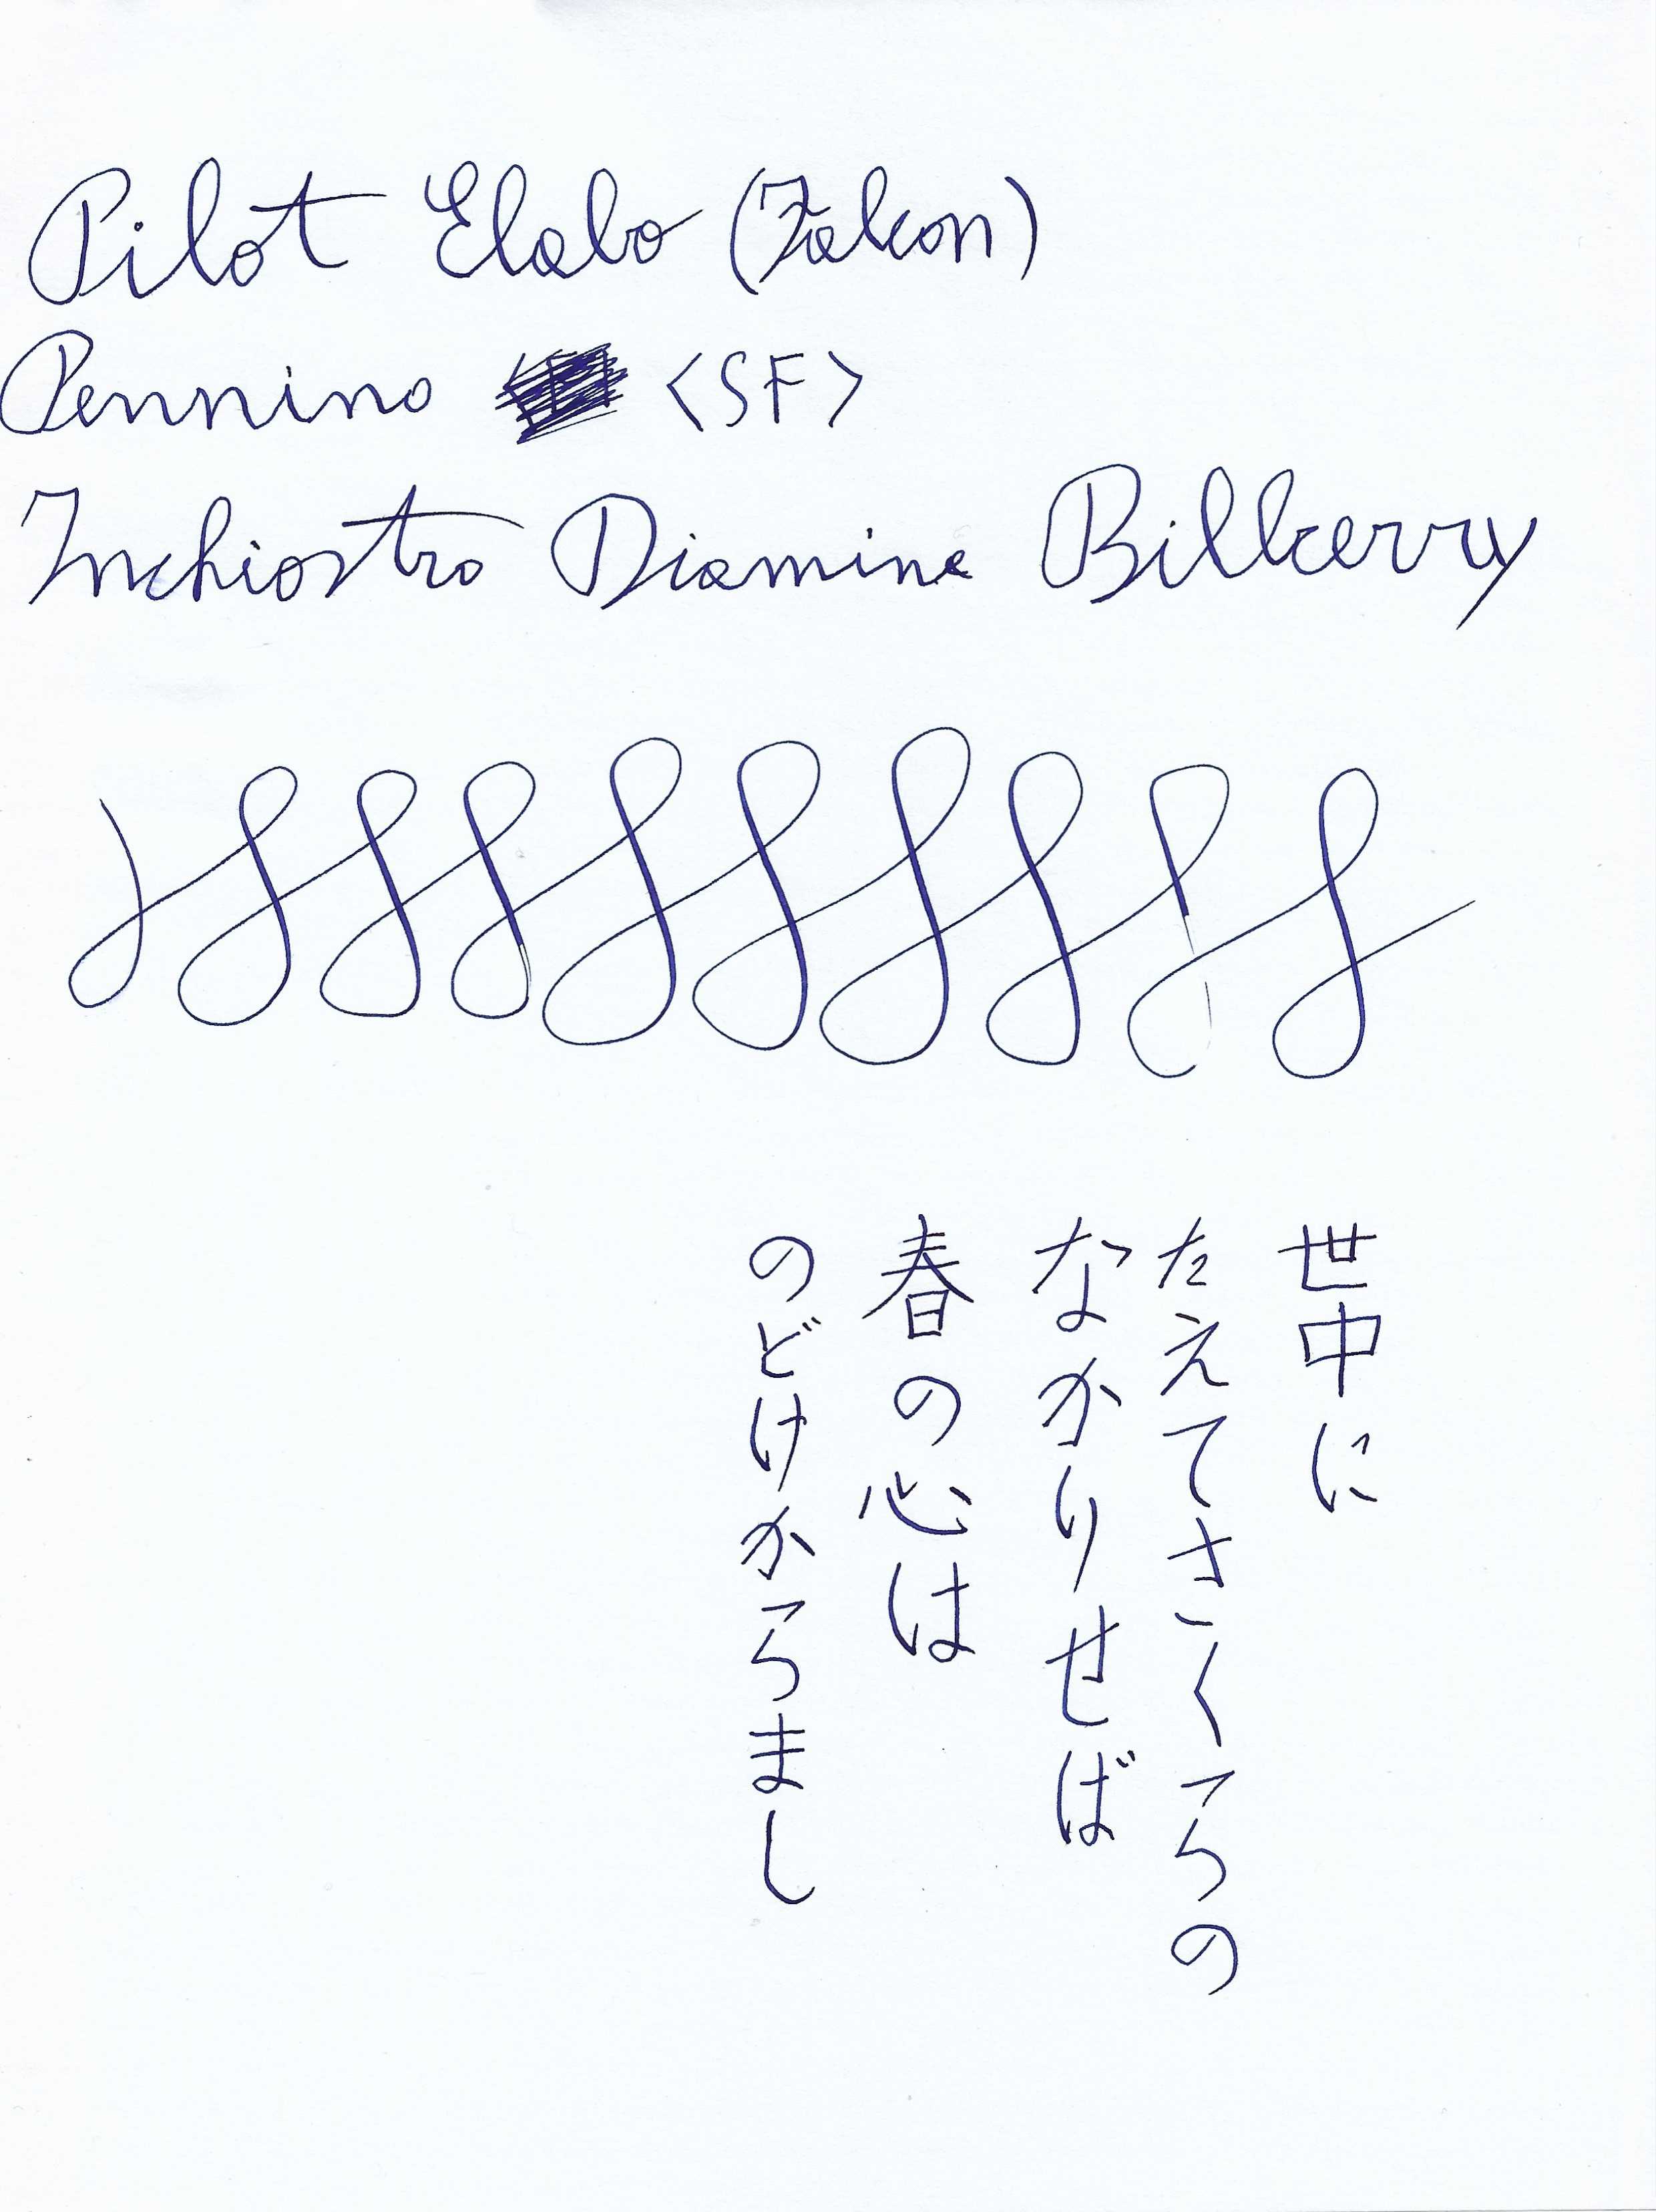 Pilot Elabo (Falcon)
Pennino <SF>
Inchiostro Diamine Bilberry
世中に
たえてさくらの
なかりせば
春の心は
のどけからまし